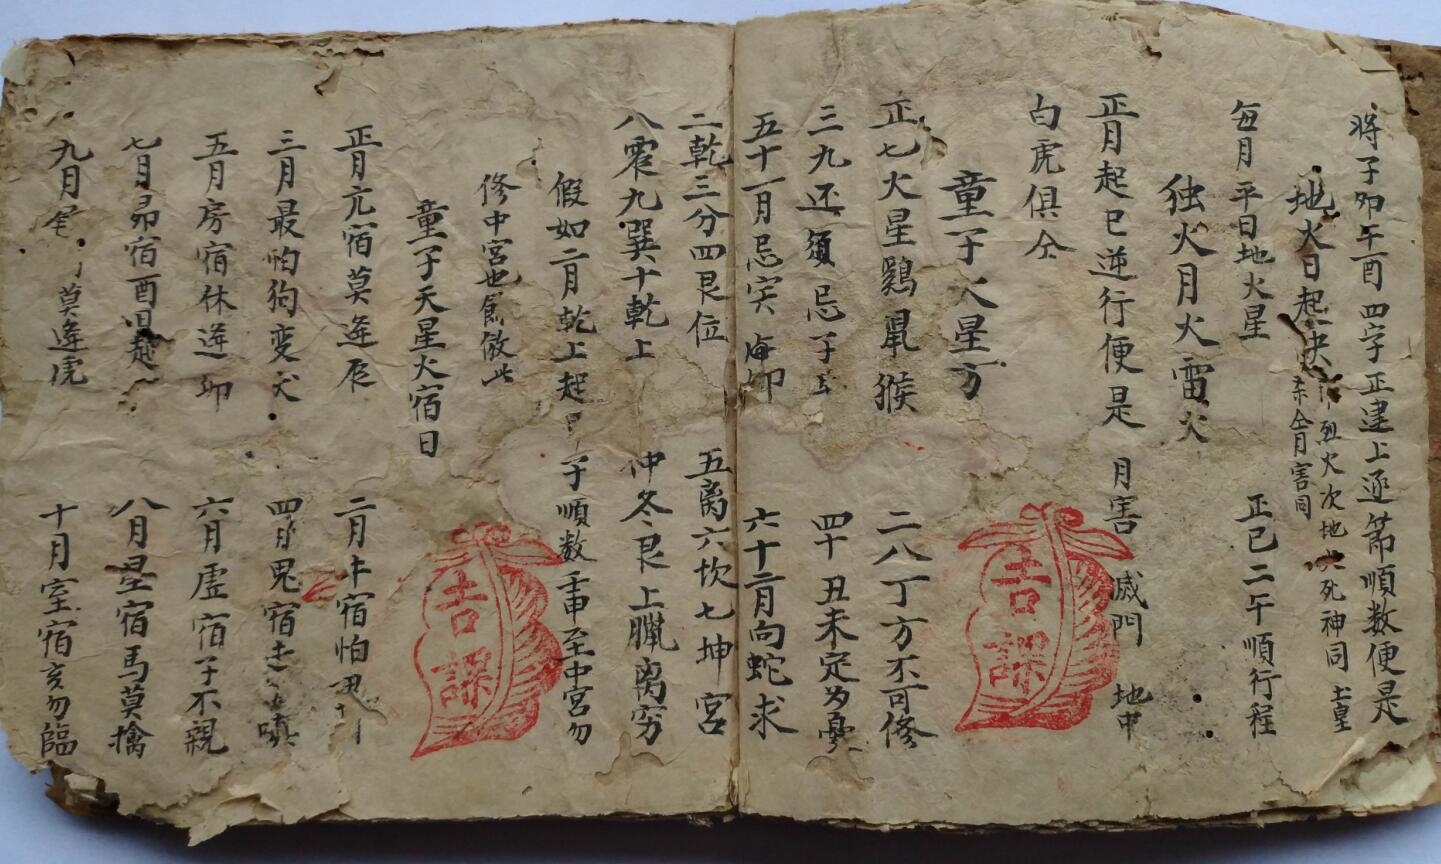 将子卯午酉四字正建上逆節順数便是
地火日起决 烈火次地火死神同 土皇
仝月害同
每月平日地火星 正巳二午順行程
独火月火雷火
正月起巳逆行便是 月害 滅門 地中
白虎俱仝
童子火星方
正七火星鷄鼠猴 二八丁方不可修
三九还須忌子 四十丑未定多憂
五十一月忌寅 卯 六十二月向蛇求
二乾三分四艮位 五离六坎七坤宮
八震九巽十乾上 仲冬艮上臘离穷
假如二月乾上起 子順数壬申至中宮勿
修中宮也餘倣此
童子天星火宿日
正月亢宿莫逢辰 二月牛宿怕
三月最怕狗变犬 四月鬼宿
五月房宿休逢卯 六月虚宿子不親
七月昴宿酉 八月星宿馬莫擒
九月 莫逢虎 十月室宿亥勿臨
吉課
吉課